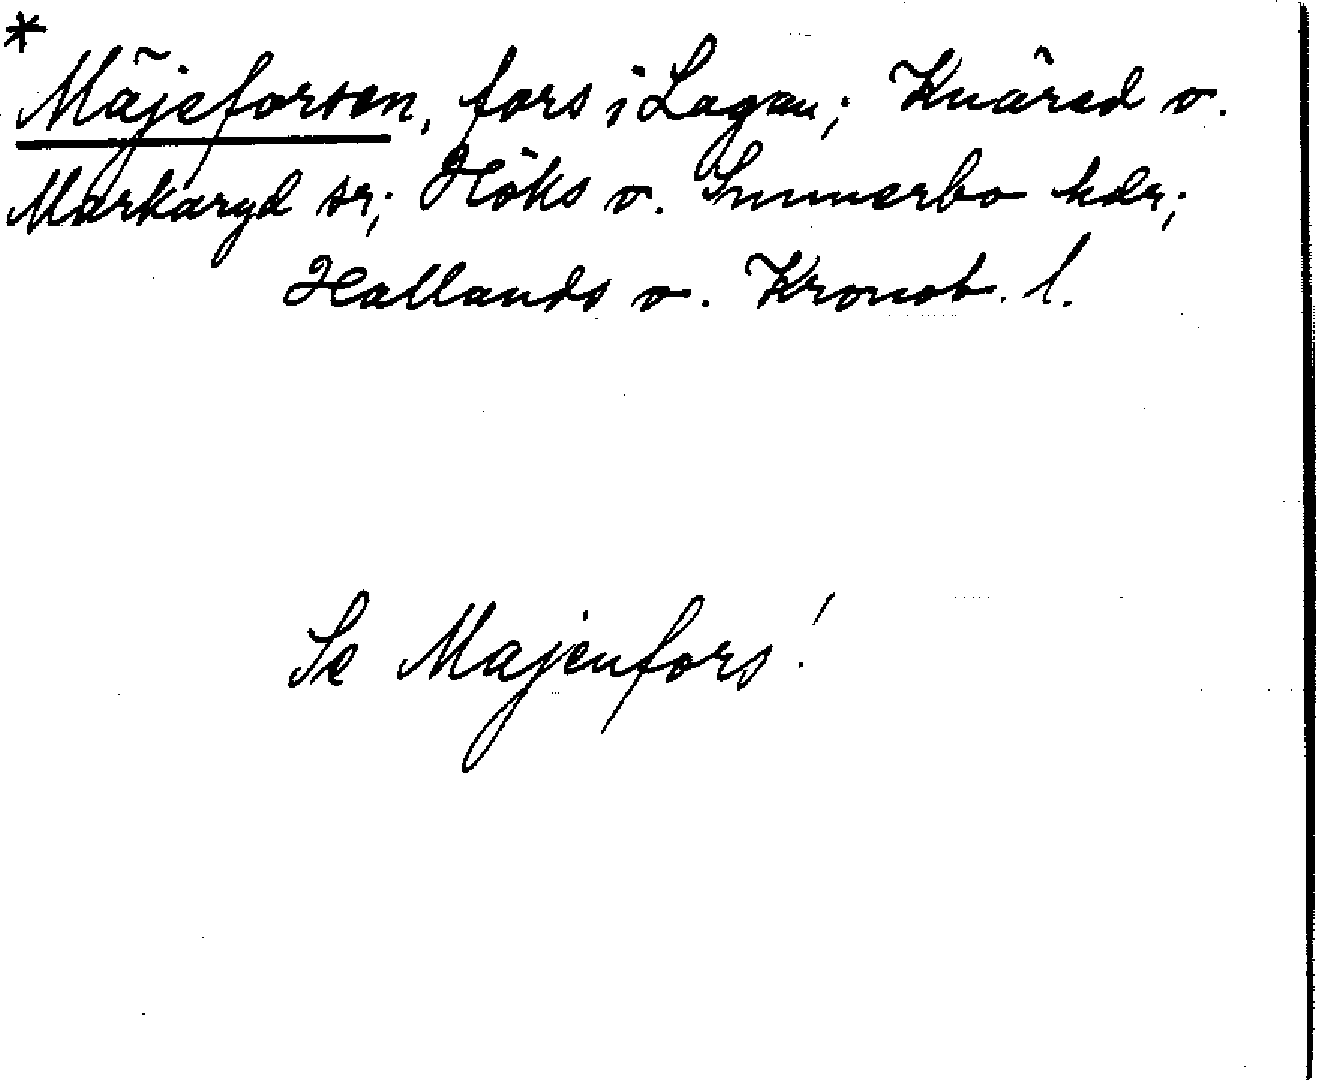 * Mäjeforsen, fors i Lagan; Knäred o.
Markaryd sr; Höks o. Sunnerbo hdr;
Hallands o. Kronob. l.
Se Majenfors!